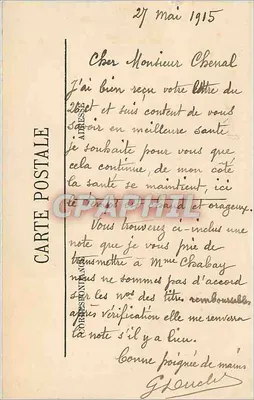 27 mai 1915
Cher Monsieur Chenal
J'ai bien reçu votre lettre du
25 et et suis content de vous
savoir en meilleure santé
je souhaite pour vous que
cela continue, de mon côté
la santé se maintient, ici
le temps est chaud et orageux.
Vous trouverez ci-inclus une
note que je vous prie de
transmettre à Mme Chabay
nous ne sommes pas d'accord
sur les nos des titres remboursables
après vérification elle me renverra
la note s'il y a lieu.
Bonne poignée de mains
CARTE POSTALE
ADRESSE
CORRESPONDANCE
CPArama.com